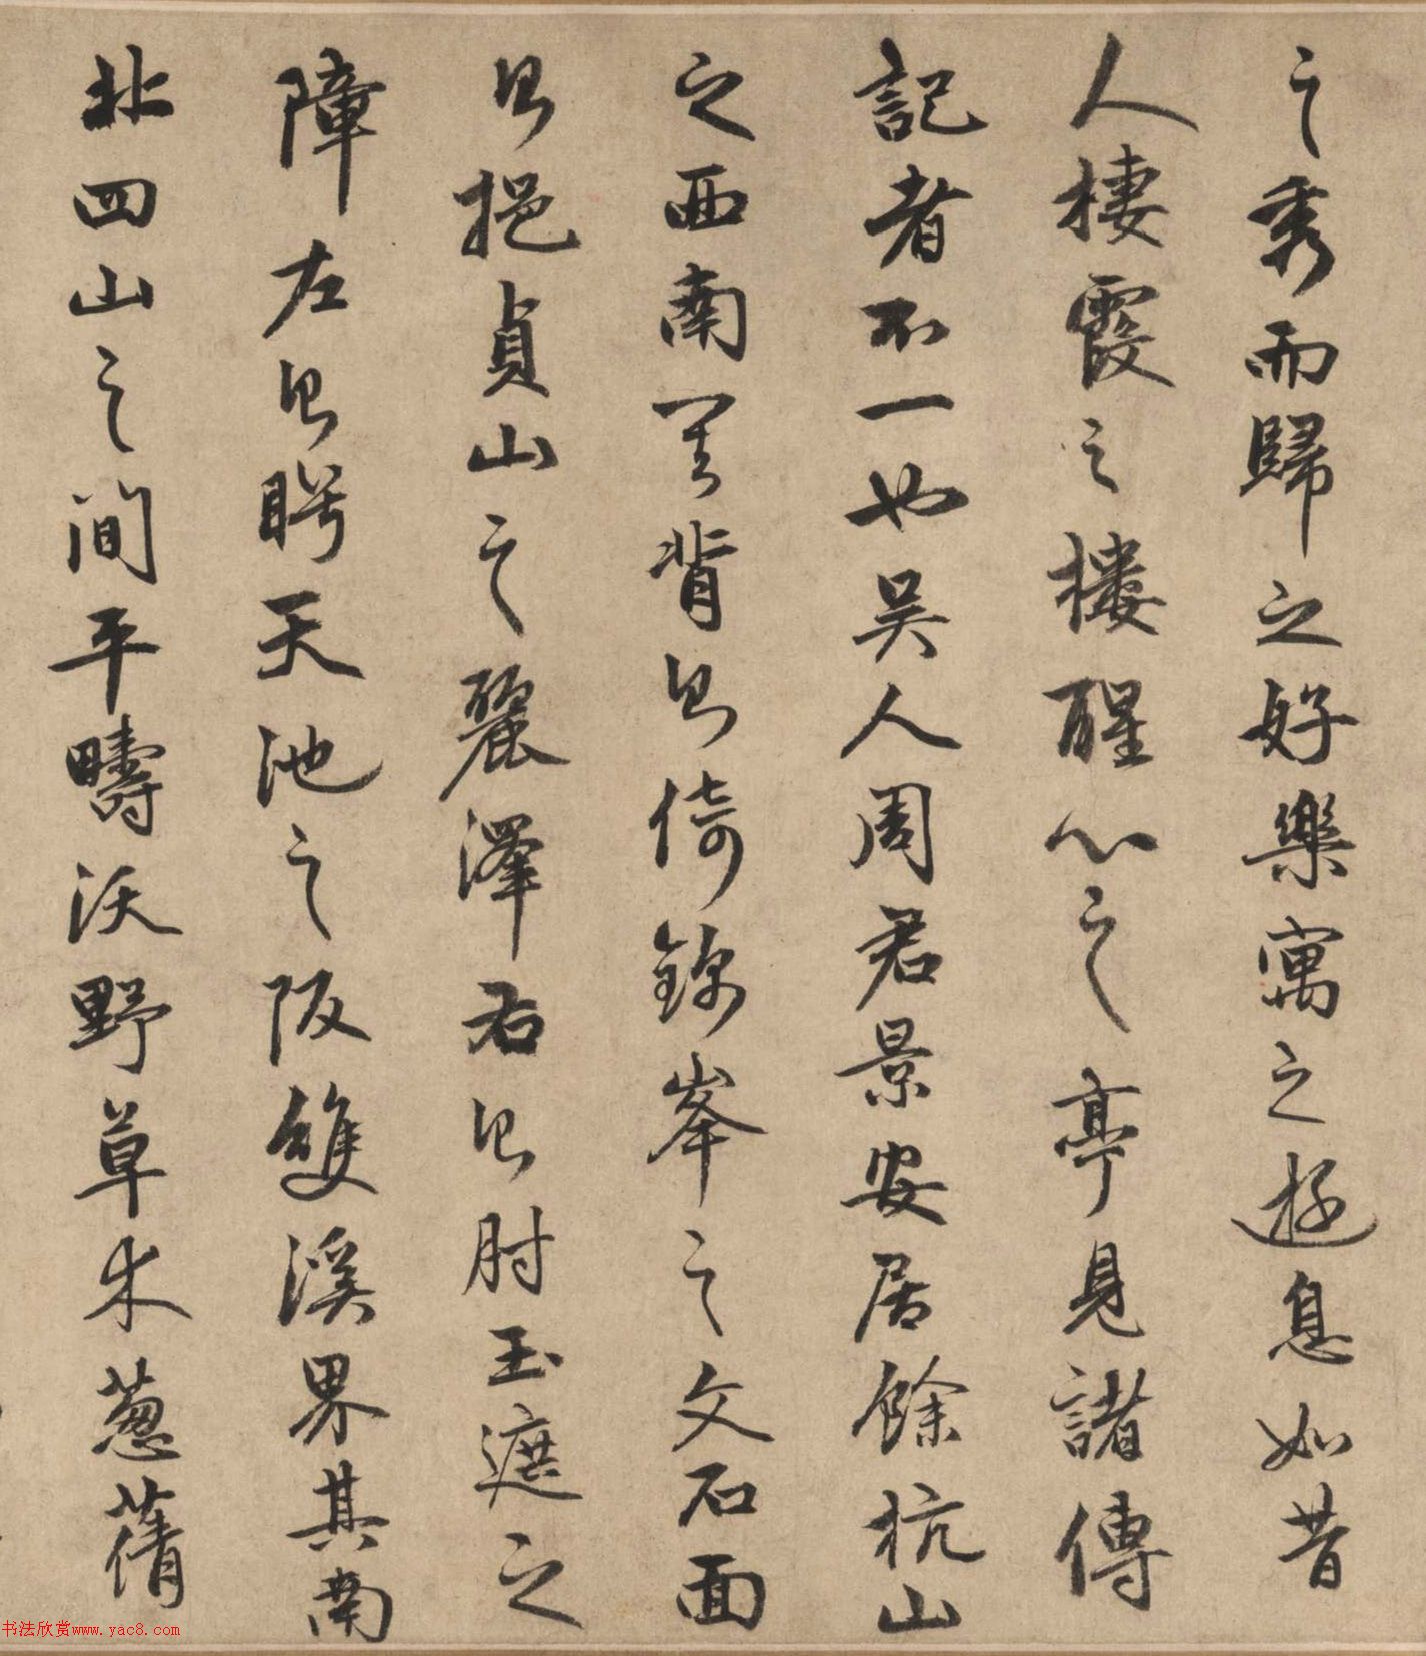 之秀而歸之好樂寓之遊息如昔
人棲霞之樓醒心之亭見諸傳
記者不一也吴人周君景安居餘杭山
之西南焉背則倚錦峯之文石面
則挹貞山之麗澤右則肘玉遮之
障左則盻天池之阪雙溪界其南
北四山之間平疇沃野草木葱蒨
书法欣赏www.yac8.com